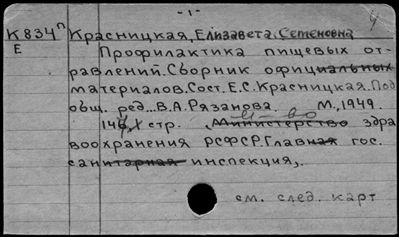 -1-
К834п Красницкая, Елизавета Семеновна
Е Профилактика пищевых от-
равлений. Сборник официальных
материалов. Сост. Е.С. Красницкая. Под
общ. ред... В.А. Рязанова. М., 1949.
стр. Министерство здра
м-во
воохранения РСФСР. Главная гос.
санитарная инспекция,.
см. след. карт